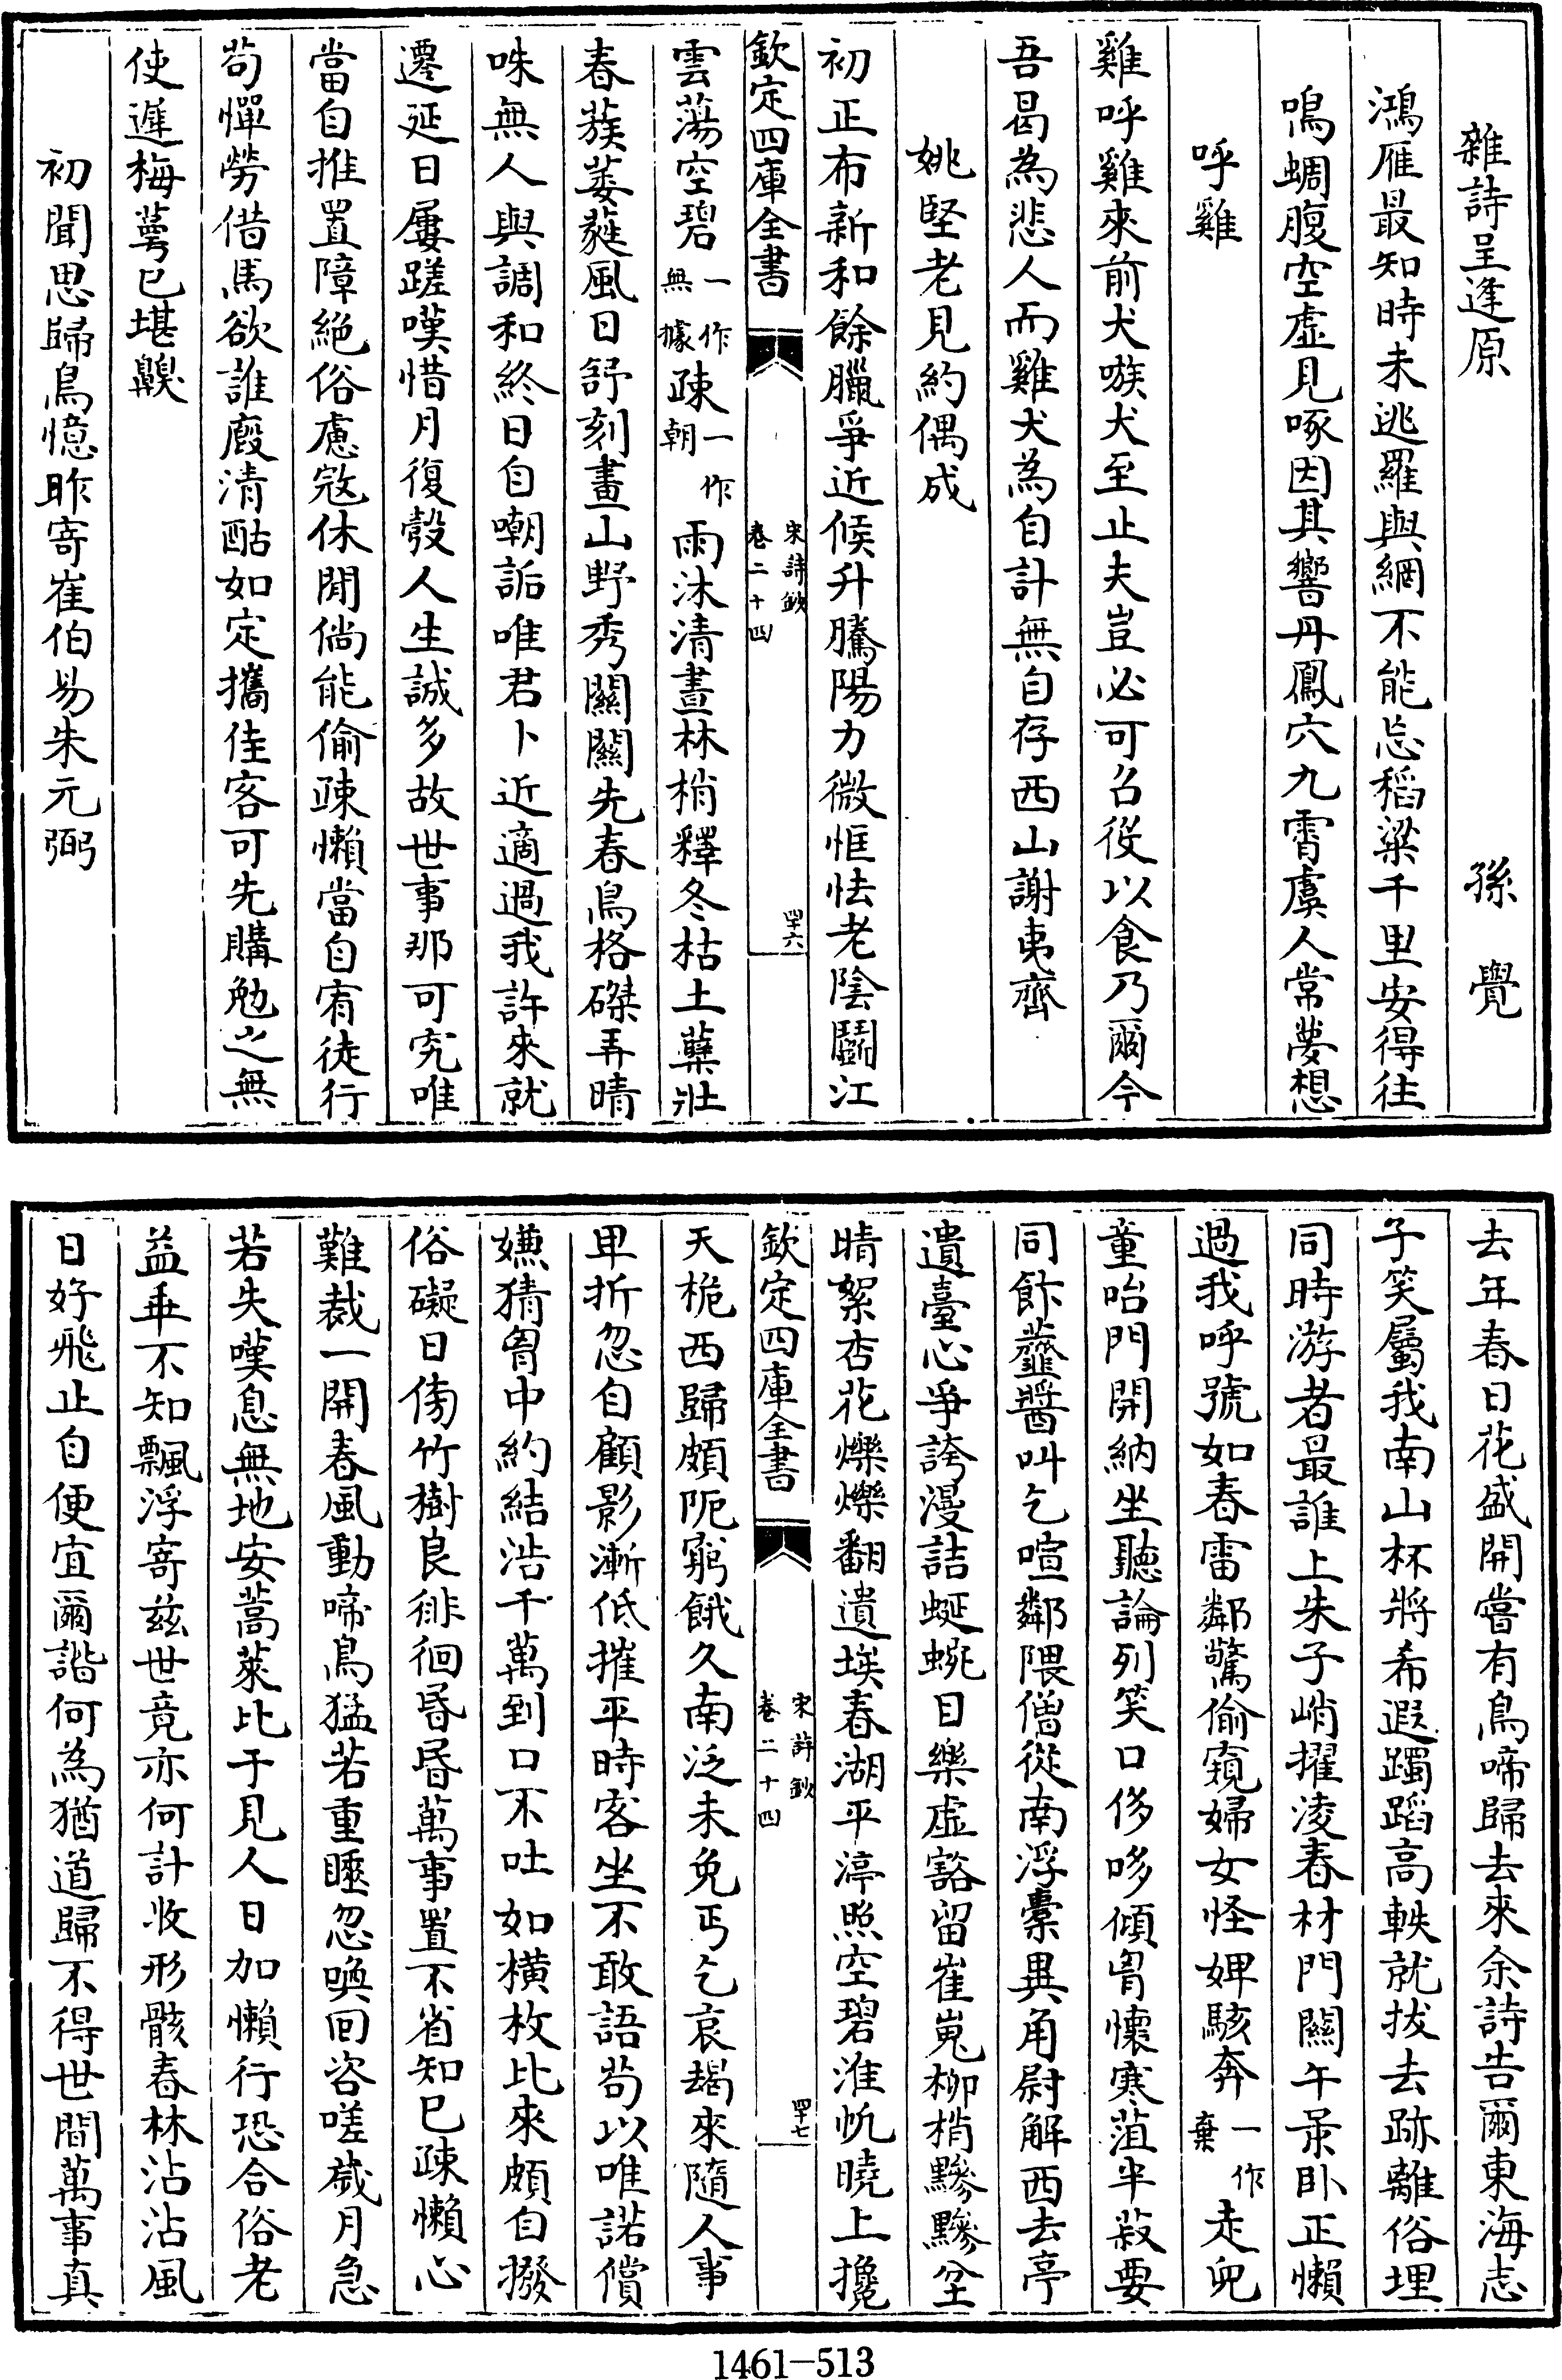 雜詩呈逢原　孫　覺
鴻雁最知時未逃羅與網不能忘稻粱千里安得往
鳴蜩腹空虛見啄因其響丹鳳穴九霄虞人常夢想
呼雞
雞呼雞來前犬嗾犬至止夫豈必可召役以食乃爾今
吾曷為悲人而雞犬為自計無自存西山謝夷齊
姚堅老見約偶成
初正布新和餘臘爭近候升騰陽力微恇怯老陰鬭江
欽定四庫全書　宋詩鈔卷二十四　四十六
雲蕩空碧一作無據疎一作朝雨沐清晝林梢釋冬枯土蘖壯
春蔟萎蕤風日舒刻畫山野秀關關先春鳥格磔弄晴
咮無人與調和終日自嘲詬唯君卜近適過我許來就
遷延日屢蹉嘆惜月復彀人生誠多故世事那可究唯
當自推置障絕俗慮寇休閒倘能偷疎懶當自宥徒行
苟憚勞借馬欲誰廄清酤如定攜佳客可先購勉之無
使遲梅萼已堪齅
初聞思歸鳥憶昨寄崔伯易朱元弼
去年春日花盛開嘗有鳥啼歸去來余詩告爾東海志
子笑屬我南山杯將希遐躅蹈高軼就拔去跡離俗埋
同時游者最誰上朱子峭擢凌春材門關午景臥正懶
過我呼號如春雷鄰驚偷窺婦女怪婢駭奔一作棄走兒
童咍門開納坐聽論列笑口侈哆傾胷懷寒菹半菽要
同飰虀醬叫乞喧鄰隈僧從南浮橐異角尉解西去亭
遺臺心爭誇漫詰蜒蜿目樂虛豁留崔嵬柳梢黲黲坌
晴絮杏花爍爍翻遺埃春湖平渟照空碧淮㠩曉上攙
欽定四庫全書　宋詩鈔卷二十四　四十七
天桅西歸頗阨窮餓久南泛未免丐乞哀朅來隨人事
卑折忽自顧影漸低摧平時客坐不敢語苟以唯諾償
嫌猜胷中約結浩千萬到口不吐如橫枚比來頗自撥
俗礙日傍竹樹良徘徊昏昏萬事置不省知已疎懶心
難裁一開春風動啼鳥猛若重睡忽喚回咨嗟歲月急
若失嘆息無地安蒿萊比于見人日加懶行恐合俗老
益乖不知飄浮寄兹世竟亦何計收形骸春林沾沾風
日好飛止自便宜爾諧何為猶道歸不得世間萬事真
1461—513